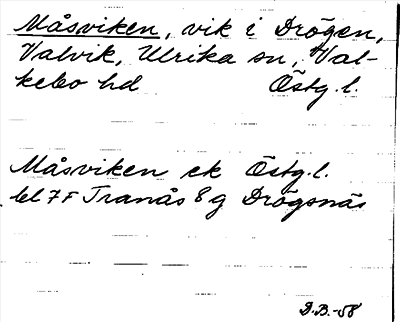 Måsviken, vik i Drögen,
Valvik, Ulrika sn, Val-
kebo hd Östg. l.
Måsviken ek Östg. l.
bl 7F Tranås 8g Drögsnäs
D.B.-58